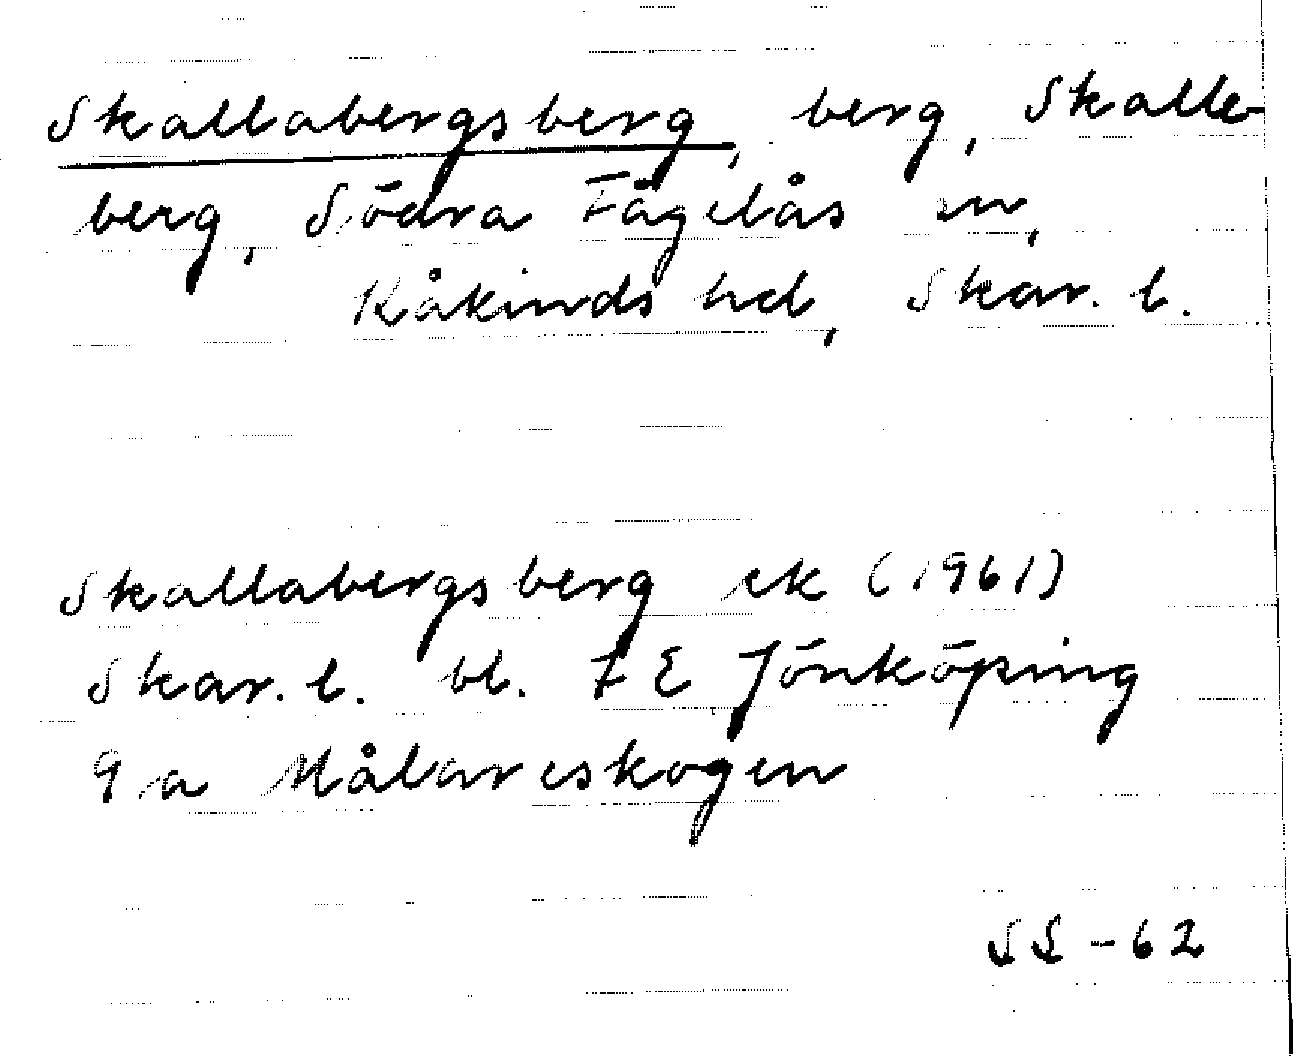 Skallabergsberg, berg, Skalle-
berg, Södra Fågelås sn,
Kåkinds hd, Skar. l.
Skallabergsberg ek (1961)
Skar. l. bl. 7 E Jönköping
9 a Målareskogen
SS-62